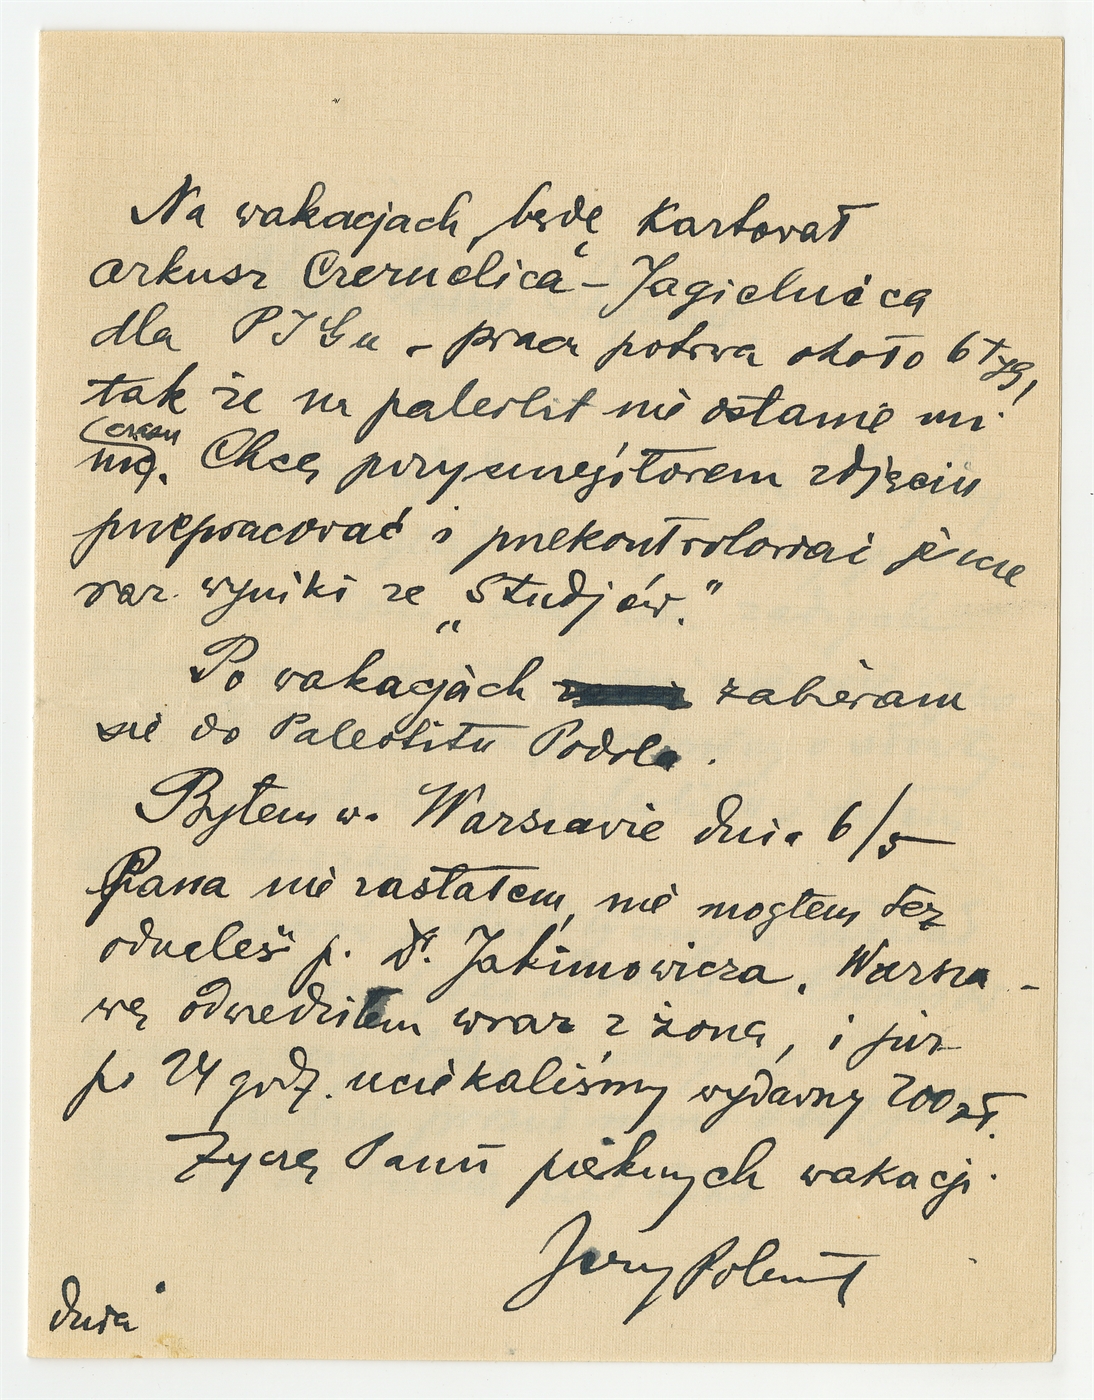 Na wakacjach będę Kartował
arkusz Czernelica – Jagielnica
dla PIGu – praca potrwa około 6 tyg,
tak że na paleolit nie ostanie mi
czasu
Chcę przy
przepracować i przekontrolować jesze
raz wyniki ze „Studjów."
Po wakacjach zabieram
sie do Paleolitu Podola.
Byłem w. Warszawie dnia 6/5
Pana nie zastałem, nie mogłem też
odnaleść p. Dr. Jakimowicza. Warsza-
wę odwedziłem wraz z żoną, i już
po 24 godz. uciekaliśmy wydawszy 200 zł.
Życzę Panu pieknych wakacji.
Jerzy Polański
dnia